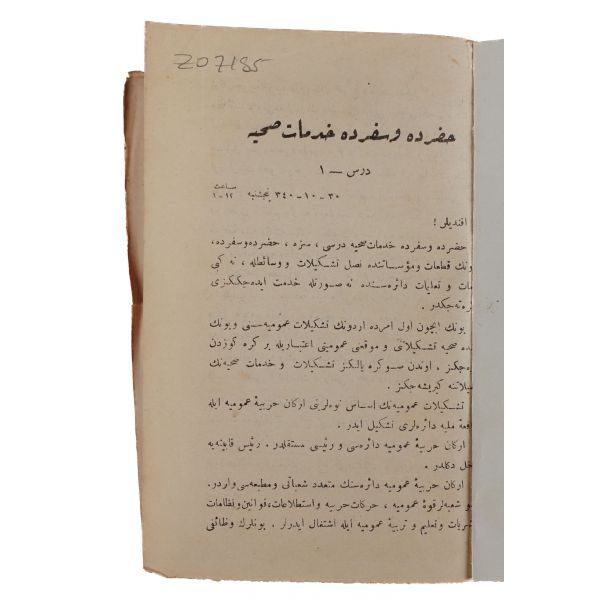 Z07185
حضرده و سفرده خدمات صحیه
درس — ١
٣٠-١٠-٣٤٠ پنجشنبه ساعت ١٢-١
افندیلر !
حضرده و سفرده خدمات صحیه درسی ، سزه ، حضرده و سفرده ،
قطعات و مؤسساتنده نصل تشکیلات و وسائطله ، نه کبی
و تعلیمات دائره‌سنده نه صورتله خدمت ایده‌جککزی
یونک ایچون اول امرده اردونک تشکیلات عمومیه‌سنی و بونک
صحیه تشکیلاتنی و موقعنی عمومیتی اعتباریله بر کره کوزدن
، اوندن صوکره یالکز تشکیلات و خدمات صحیه‌نک
کیریشه‌جکز .
تشکیلات عمومیه‌نک اساس نوه‌لرینی ارکان حربیهٔ عمومیه ایله
ملیه دائره‌لری تشکیل ایدر .
ارکان حربیهٔ عمومیه دائره‌سی و رئیسی مستقلدر . رئیس قابینه‌یه
دکلدر .
ارکان حربیهٔ عمومیه دائره‌سنک متعدد شعباتی و مطبعه‌سی واردر .
شعبه‌لر قوهٔ عمومیه ، حرکات حربیه و استطلاعات ، قوانین و نظامات
و تعلیم و تربیهٔ عمومیه ایله اشتغال ایدرلر . بونلرک وظائفی